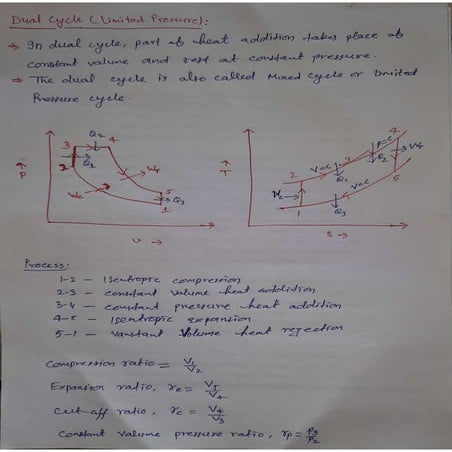 Dual Cycle (Limited Pressure):
⇒ In dual cycle, part of heat addition takes place at
constant volume and rest at constant pressure.
⇒ The dual cycle is also called Mixed cycle or limited
Pressure cycle.
3 Q2 4
2 Q1
P
We
W4
5
Q3
1
υ →
P=C
4
W4
Q2
V=C
3
2
Q1
T
Wc
5
V=C
Q3
1
S →
Process:
1-2 - Isentropic compression
2-3 - constant volume heat addidion
3-4 - constant pressure heat addition
4-5 - Isentropic expansion
5-1 - Vanstant Volume heat rejection
Compression ratio = V1/V2
Expansion ratio, re = V5/V4
Cut-off ratio, rc = V4/V3
Constant Volume pressure ratio, rp = P3/P2